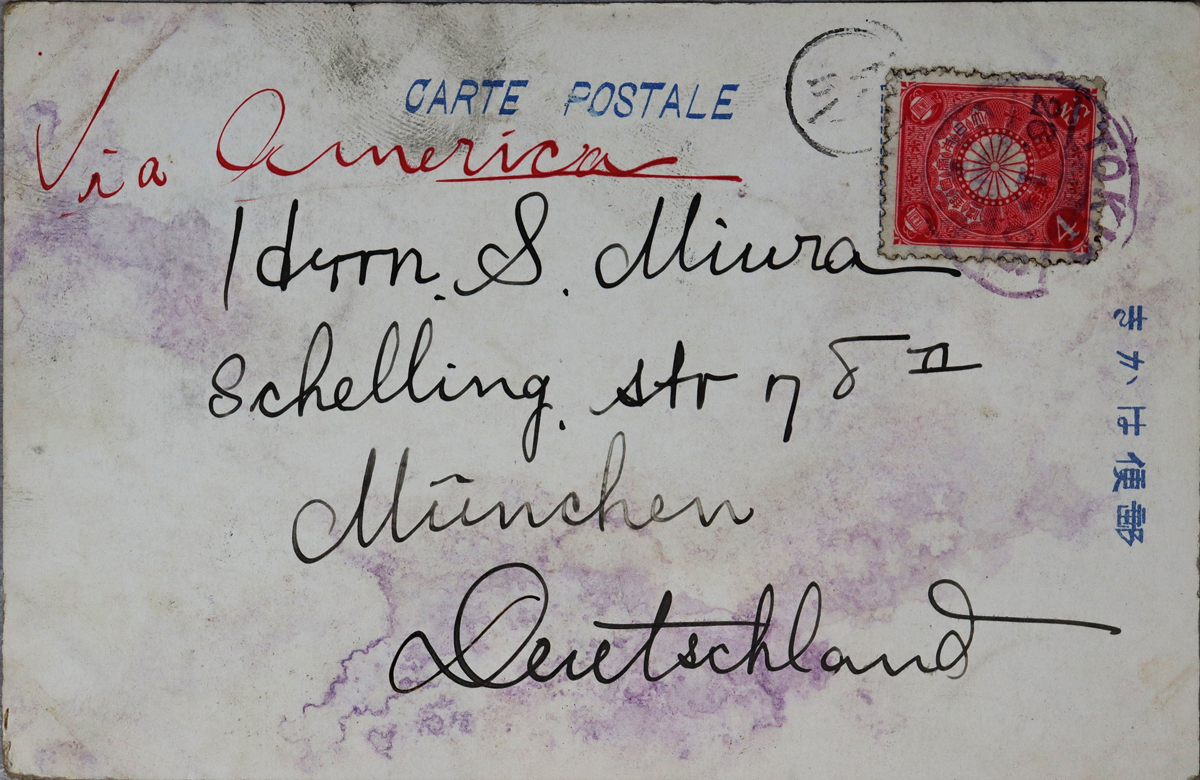 CARTE POSTALE
Via America
Herrn. S. Miura
Schelling. str 78 II
München
Deutschland
郵便はがき
4
TOKI